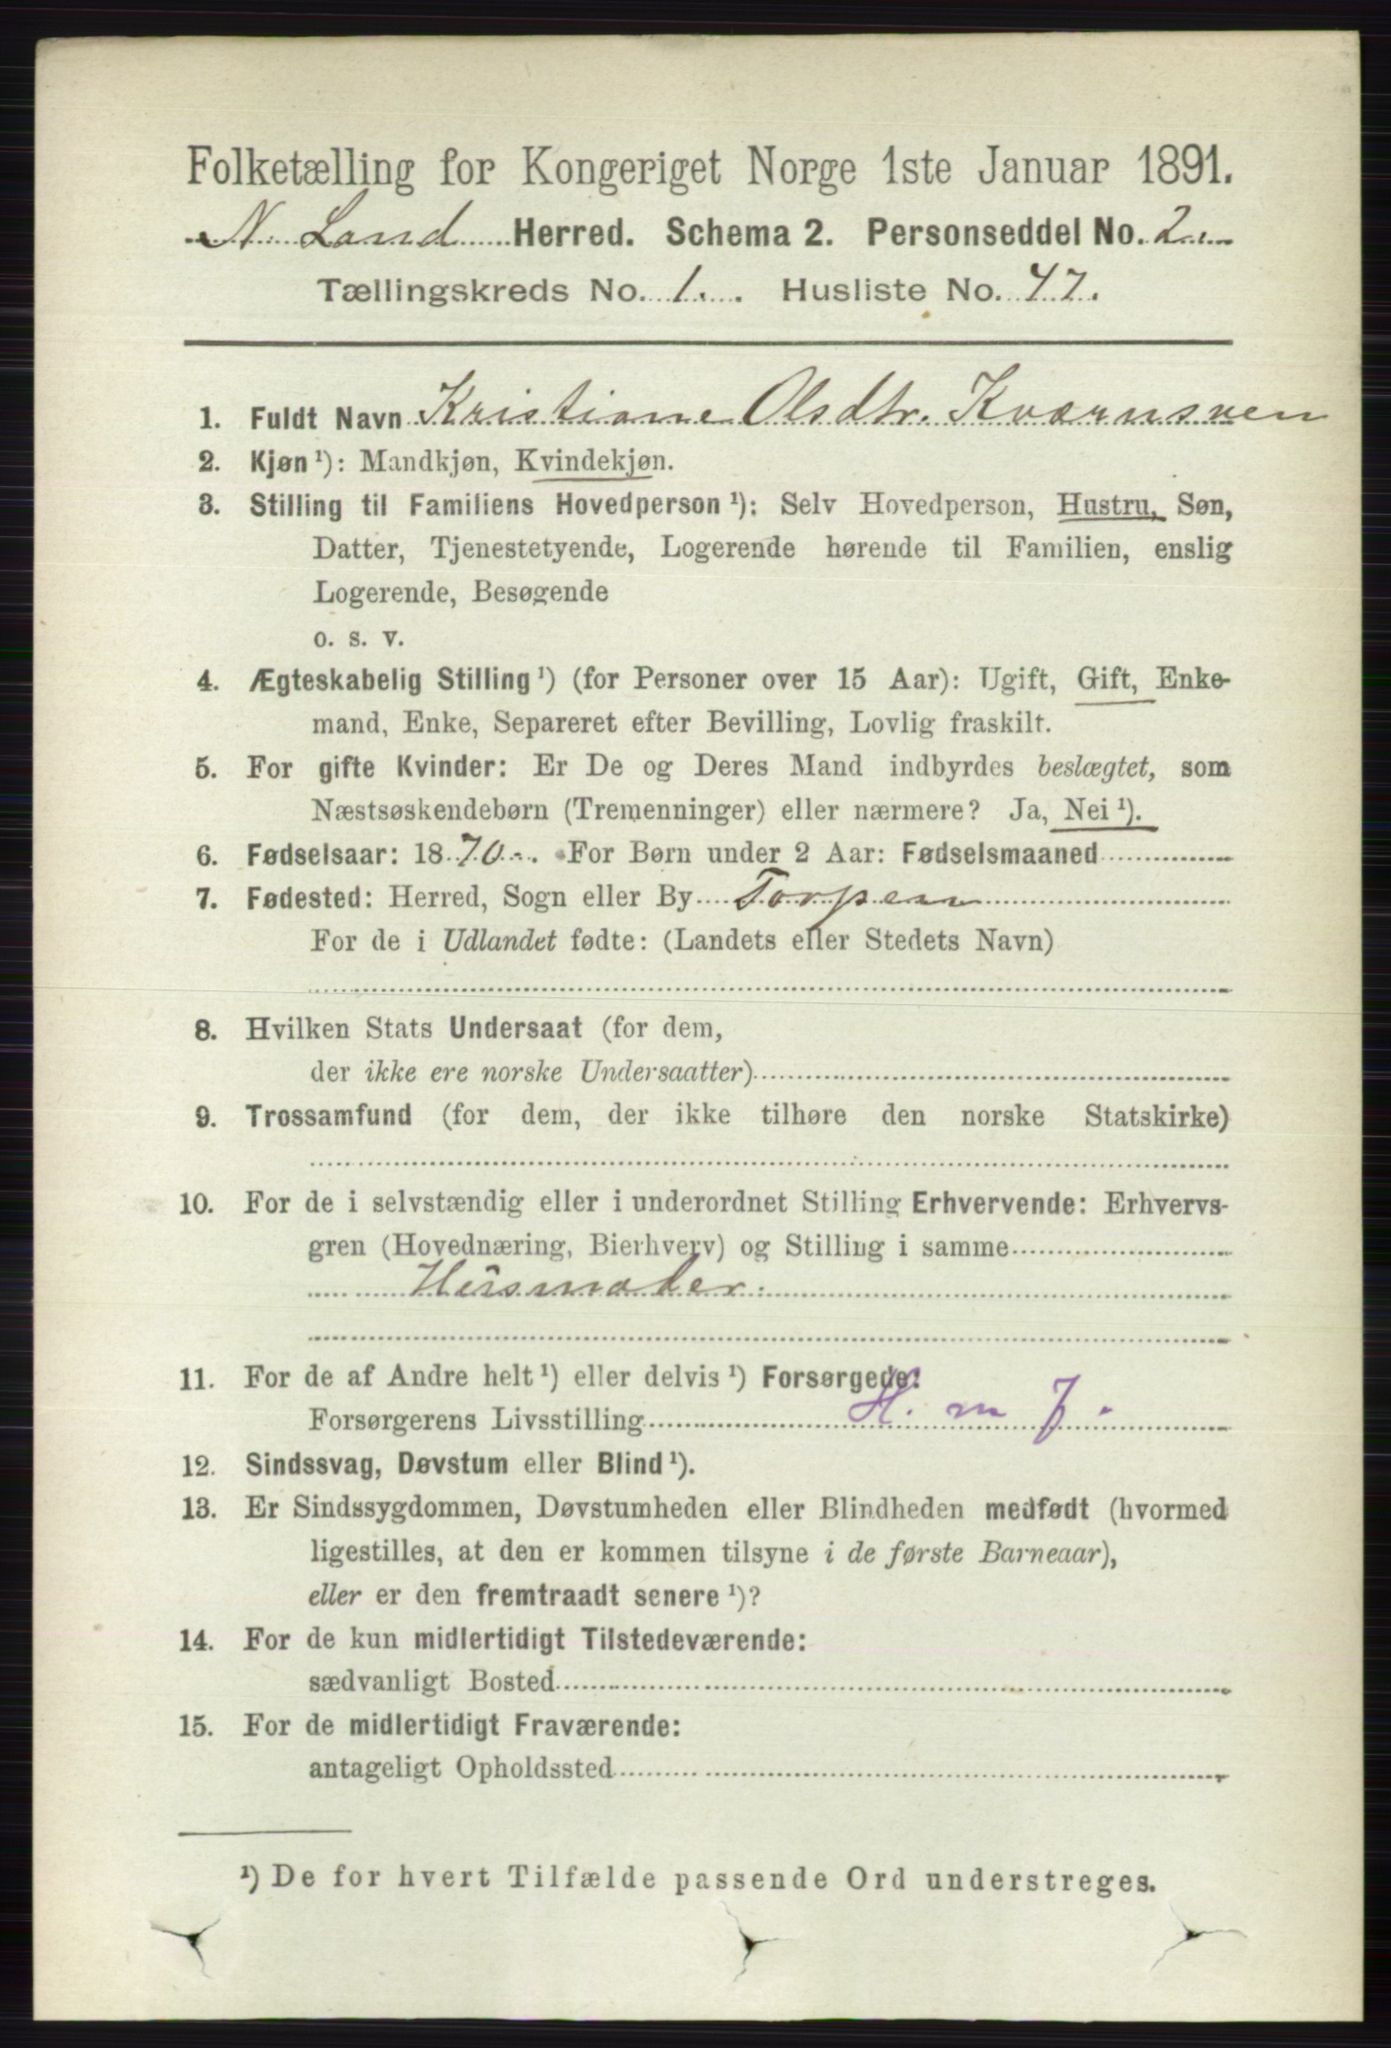 Folketælling for Kongeriget Norge 1ste Januar 1891.
N. Land Herred. Schema 2. Personseddel No. 2.
Tællingskreds No. 1. Husliste No. 47.
1. Fuldt Navn Kristiane Olsdtr. Kværnsven
2. Kjøn ¹): Mandkjøn, Kvindekjøn.
3. Stilling til Familiens Hovedperson ¹): Selv Hovedperson, Hustru, Søn,
Datter, Tjenestetyende, Logerende hørende til Familien, enslig
Logerende, Besøgende
o. s. v.
4. Ægteskabelig Stilling ¹) (for Personer over 15 Aar): Ugift, Gift, Enke-
mand, Enke, Separeret efter Bevilling, Lovlig fraskilt.
5. For gifte Kvinder: Er De og Deres Mand indbyrdes beslægtet, som
Næstsøskendebørn (Tremenninger) eller nærmere? Ja, Nei ¹).
6. Fødselsaar: 1870. For Børn under 2 Aar: Fødselsmaaned
7. Fødested: Herred, Sogn eller By Torpen
For de i Udlandet fødte: (Landets eller Stedets Navn)
8. Hvilken Stats Undersaat (for dem,
der ikke ere norske Undersaatter)
9. Trossamfund (for dem, der ikke tilhøre den norske Statskirke)
10. For de i selvstændig eller i underordnet Stilling Erhvervende: Erhvervs-
gren (Hovednæring, Bierhverv) og Stilling i samme
Husmoder.
11. For de af Andre helt ¹) eller delvis ¹) Forsørgede:
Forsørgerens Livsstilling H. m J.
12. Sindssvag, Døvstum eller Blind ¹).
13. Er Sindssygdommen, Døvstumheden eller Blindheden medfødt (hvormed
ligestilles, at den er kommen tilsyne i de første Barneaar),
eller er den fremtraadt senere ¹)?
14. For de kun midlertidigt Tilstedeværende:
sædvanligt Bosted
15. For de midlertidigt Fraværende:
antageligt Opholdssted
¹) De for hvert Tilfælde passende Ord understreges.